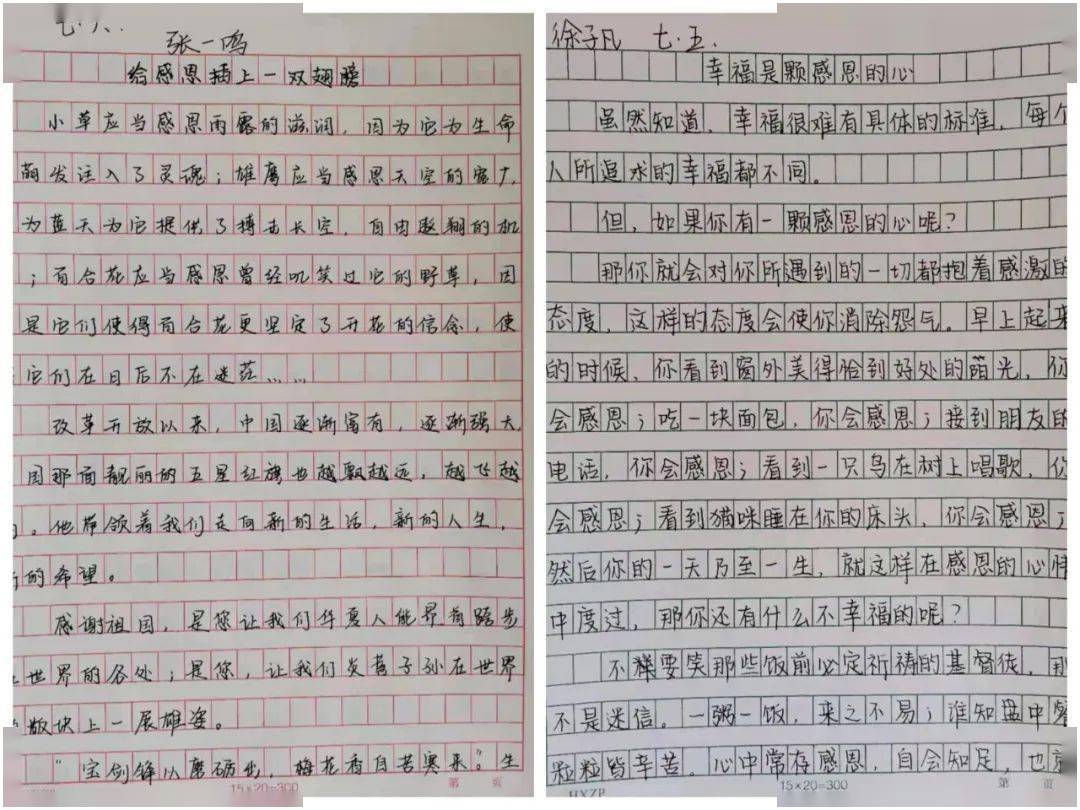 七.六.
张一鸣
给感恩插上一双翅膀
小草应当感恩雨露的滋润，因为它为生命
萌发注入了灵魂；雄鹰应当感恩天空的宽广，
为蓝天为它提供了搏击长空，自由遨翔的机
；百合花应当感恩曾经叽笑过它的野草，因
是它们使得百合花更坚定了开花的信念，使
它们在日后不在迷茫……
改革开放以来，中国逐渐富有，逐渐强大，
国那面靓丽的五星红旗也越飘越远，越飞越
。他带领着我们走向新的生活，新的人生，
的希望。
感谢祖国，是您让我们华夏人能畀有踏步
世界的各处；是您，让我们炎黄子孙在世界
版块上一展雄姿。
“宝剑锋从磨砺出，梅花香自苦寒来。”生
15×20=300 第 页
徐子凡 七.五.
幸福是颗感恩的心
虽然知道，幸福很难有具体的标准，每个
人所追求的幸福都不同。
但，如果你有一颗感恩的心呢？
那你就会对你所遇到的一切都抱着感激的
态度，这样的态度会使你消除怨气。早上起来
的时候，你看到窗外美得恰到好处的阳光，你
会感恩；吃一块面包，你会感恩；接到朋友的
电话，你会感恩；看到一只鸟在树上唱歌，你
会感恩；看到猫咪睡在你的床头，你会感恩；
然后你的一天乃至一生，就这样在感恩的心情
中度过，那你还有什么不幸福的呢？
不要笑那些饭前必定祈祷的基督徒，那
不是迷信。一粥一饭，来之不易；谁知盘中餐
粒粒皆辛苦。心中常存感恩，自会知足，也就
HXZP 15×20=300 第 页